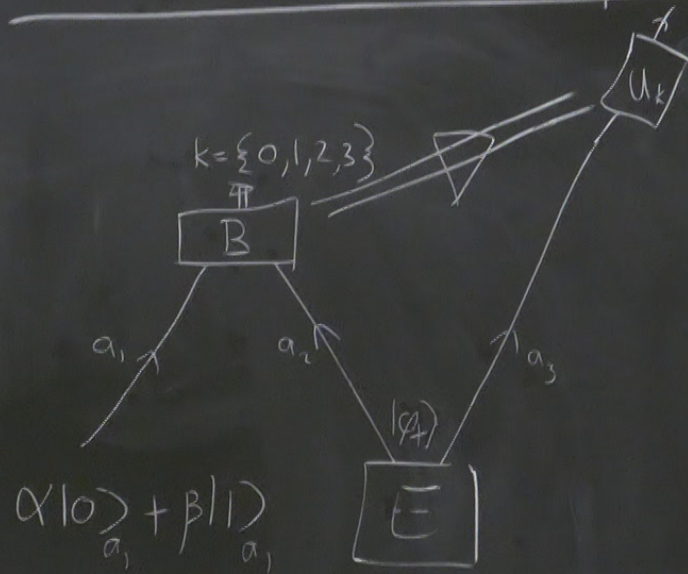 U_k
k={0,1,2,3}
B
a₁
a₂
a₃
|φ₊⟩
α|0⟩_a₁ + β|1⟩_a₁
E